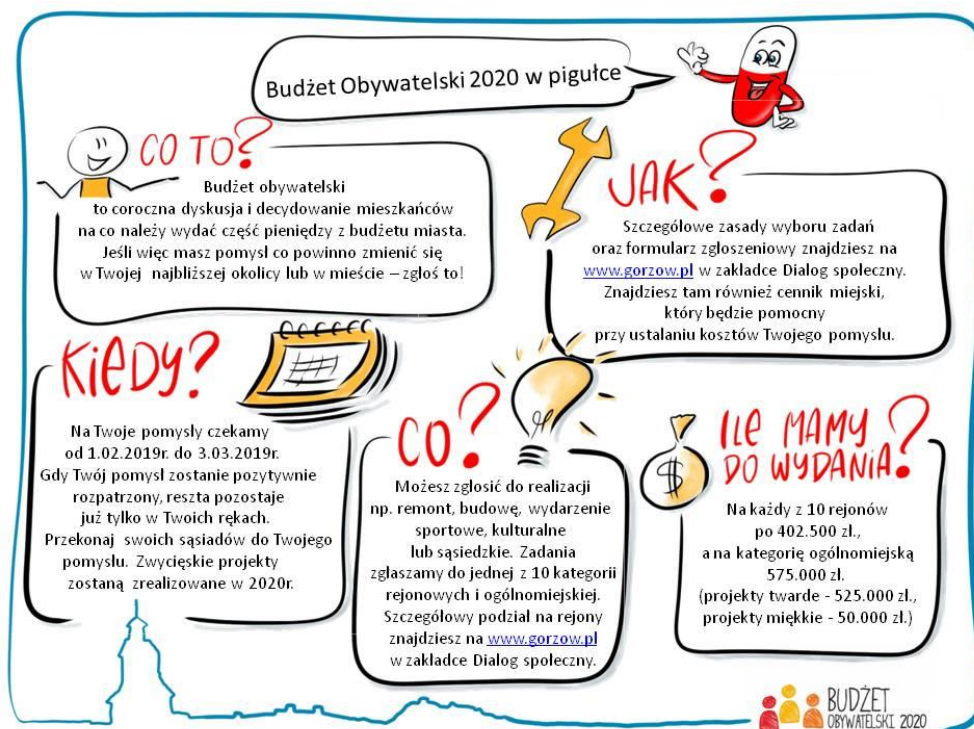 Budżet Obywatelski 2020 w pigułce
CO TO?
Budżet obywatelski
to coroczna dyskusja i decydowanie mieszkańców
na co należy wydać część pieniędzy z budżetu miasta.
Jeśli więc masz pomysł co powinno zmienić się
w Twojej najbliższej okolicy lub w mieście – zgłoś to!
JAK?
Szczegółowe zasady wyboru zadań
oraz formularz zgłoszeniowy znajdziesz na
www.gorzow.pl w zakładce Dialog społeczny.
Znajdziesz tam również cennik miejski,
który będzie pomocny
przy ustalaniu kosztów Twojego pomysłu.
KIEDY?
Na Twoje pomysły czekamy
od 1.02.2019r. do 3.03.2019r.
Gdy Twój pomysł zostanie pozytywnie
rozpatrzony, reszta pozostaje
już tylko w Twoich rękach.
Przekonaj swoich sąsiadów do Twojego
pomysłu. Zwycięskie projekty
zostaną zrealizowane w 2020r.
CO?
Możesz zgłosić do realizacji
np. remont, budowę, wydarzenie
sportowe, kulturalne
lub sąsiedzkie. Zadania
zgłaszamy do jednej z 10 kategorii
rejonowych i ogólnomiejskiej.
Szczegółowy podział na rejony
znajdziesz na www.gorzow.pl
w zakładce Dialog społeczny.
ILE MAMY
DO WYDANIA?
$
Na każdy z 10 rejonów
po 402.500 zł.,
a na kategorię ogólnomiejską
575.000 zł.
(projekty twarde - 525.000 zł.,
projekty miękkie - 50.000 zł.)
BUDŻET
OBYWATELSKI 2020